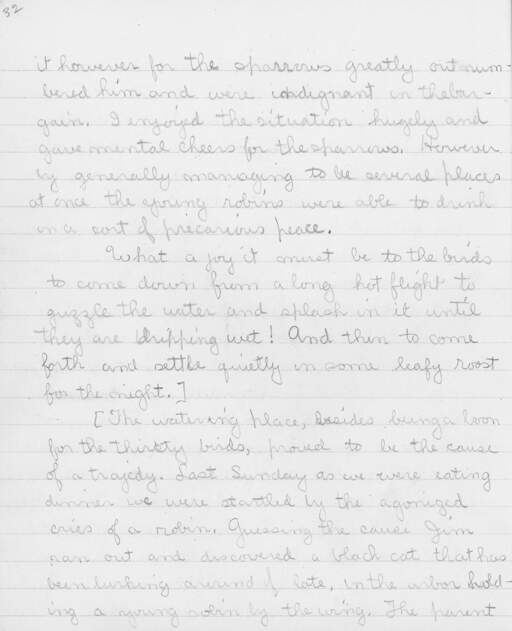 32
it however for the sparrows greatly outnum-
bered him and were indignant in the bar-
gain. I enjoyed the situation hugely and
gave mental cheers for the sparrows. However
by generally managing to be several places
at once the young robins were able to drink
in a sort of precarious peace.
What a joy it must be to the birds
to come down from a long hot flight to
guzzle the water and splash in it until
they are dripping wet! And then to come
forth and settle quietly in some leafy roost
for the night.]
[The watering place, besides being a boon
for the thirsty birds, proved to be the cause
of a trajedy. Last Sunday as we were eating
dinner we were startled by the agonized
cries of a robin. Guessing the cause Jim
ran out and discovered a black cat that has
been lurking around of late, in the arbor hold-
ing a young robin by the wing. The parent